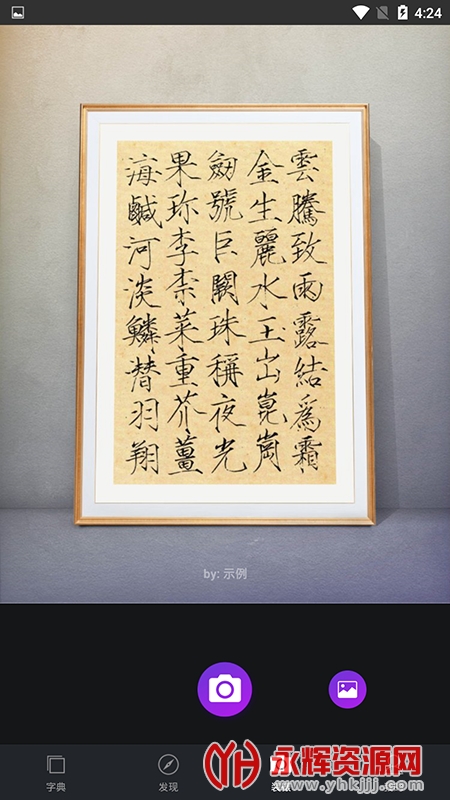 4:24
雲騰致雨露結爲霜
金生麗水玉出崑崗
劒號巨闕珠稱夜光
果珍李柰菜重芥薑
海鹹河淡鱗潛羽翔
by: 示例
字典
发现
永辉资源网
www.yhkjjj.com